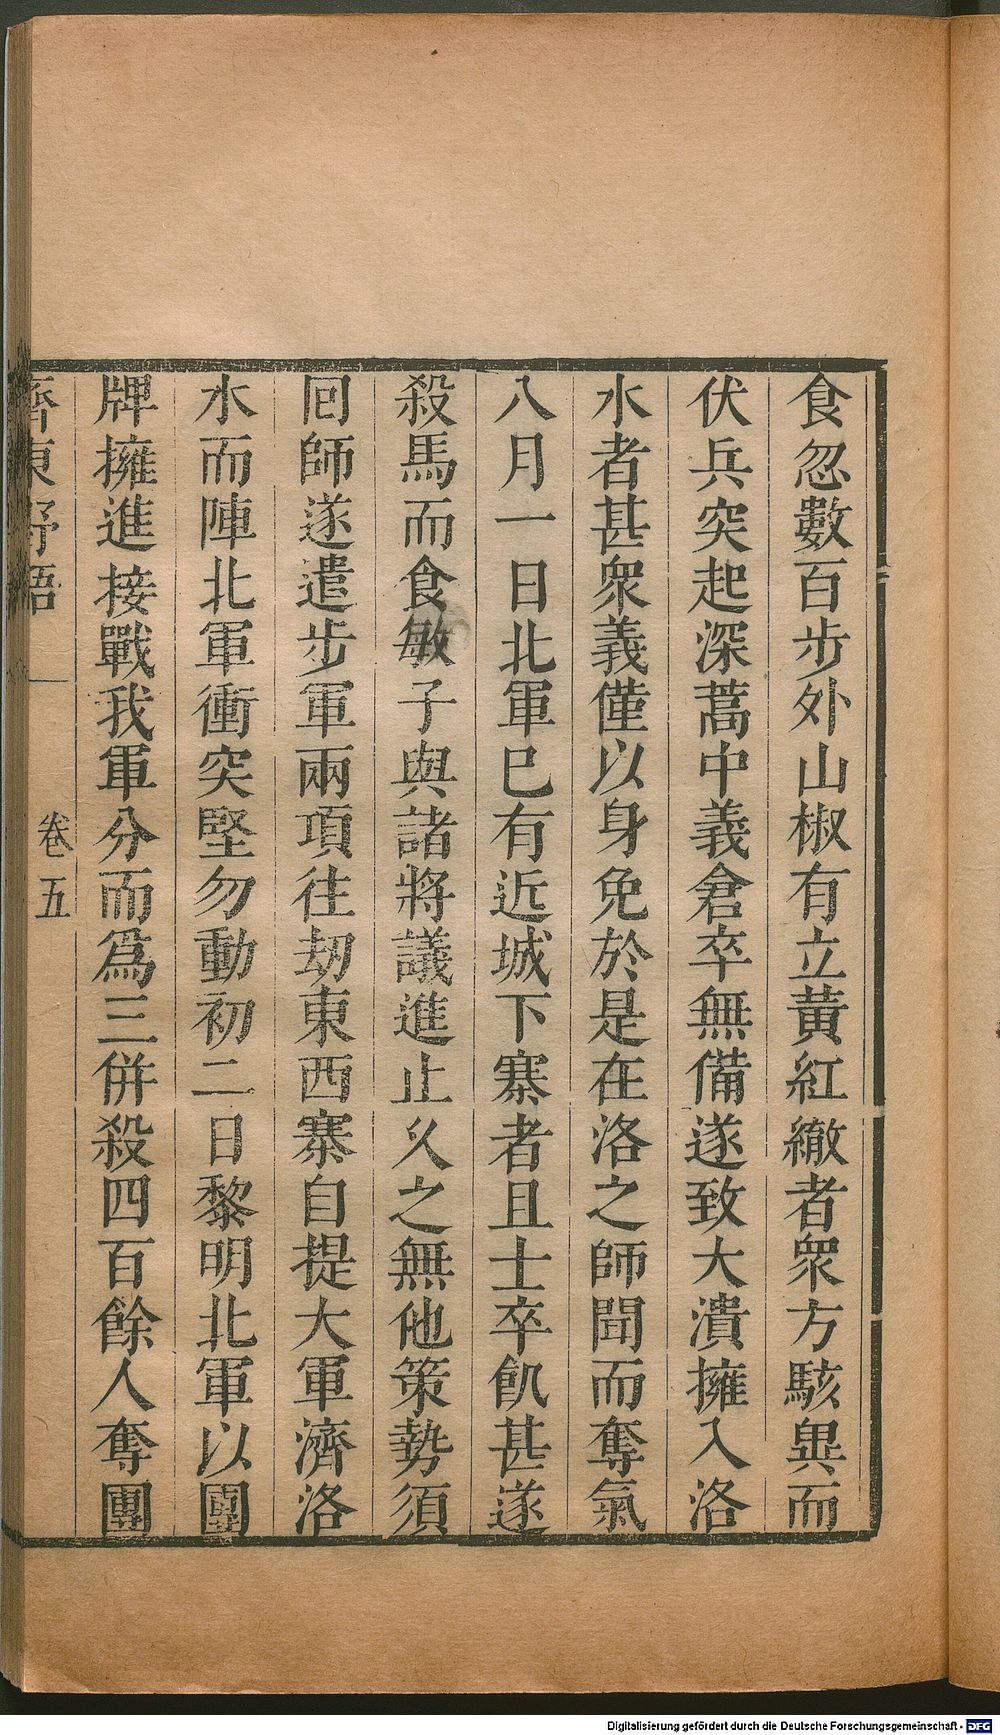 食忽數百步外山椒有立黃紅繖者衆方駭異而
伏兵突起深蒿中義倉卒無備遂致大潰擁入洛
水者甚衆義僅以身免於是在洛之師聞而奪氣
八月一日北軍已有近城下寨者且士卒飢甚遂
殺馬而食敏子與諸將議進止久之無他策勢須
回師遂遣步軍兩項往刼東西寨自提大軍濟洛
水而陣北軍衝突堅勿動初二日黎明北軍以團
牌擁進接戰我軍分而爲三併殺四百餘人奪團
齊東野語 卷五
Digitalisierung gefördert durch die Deutsche Forschungsgemeinschaft - DFG